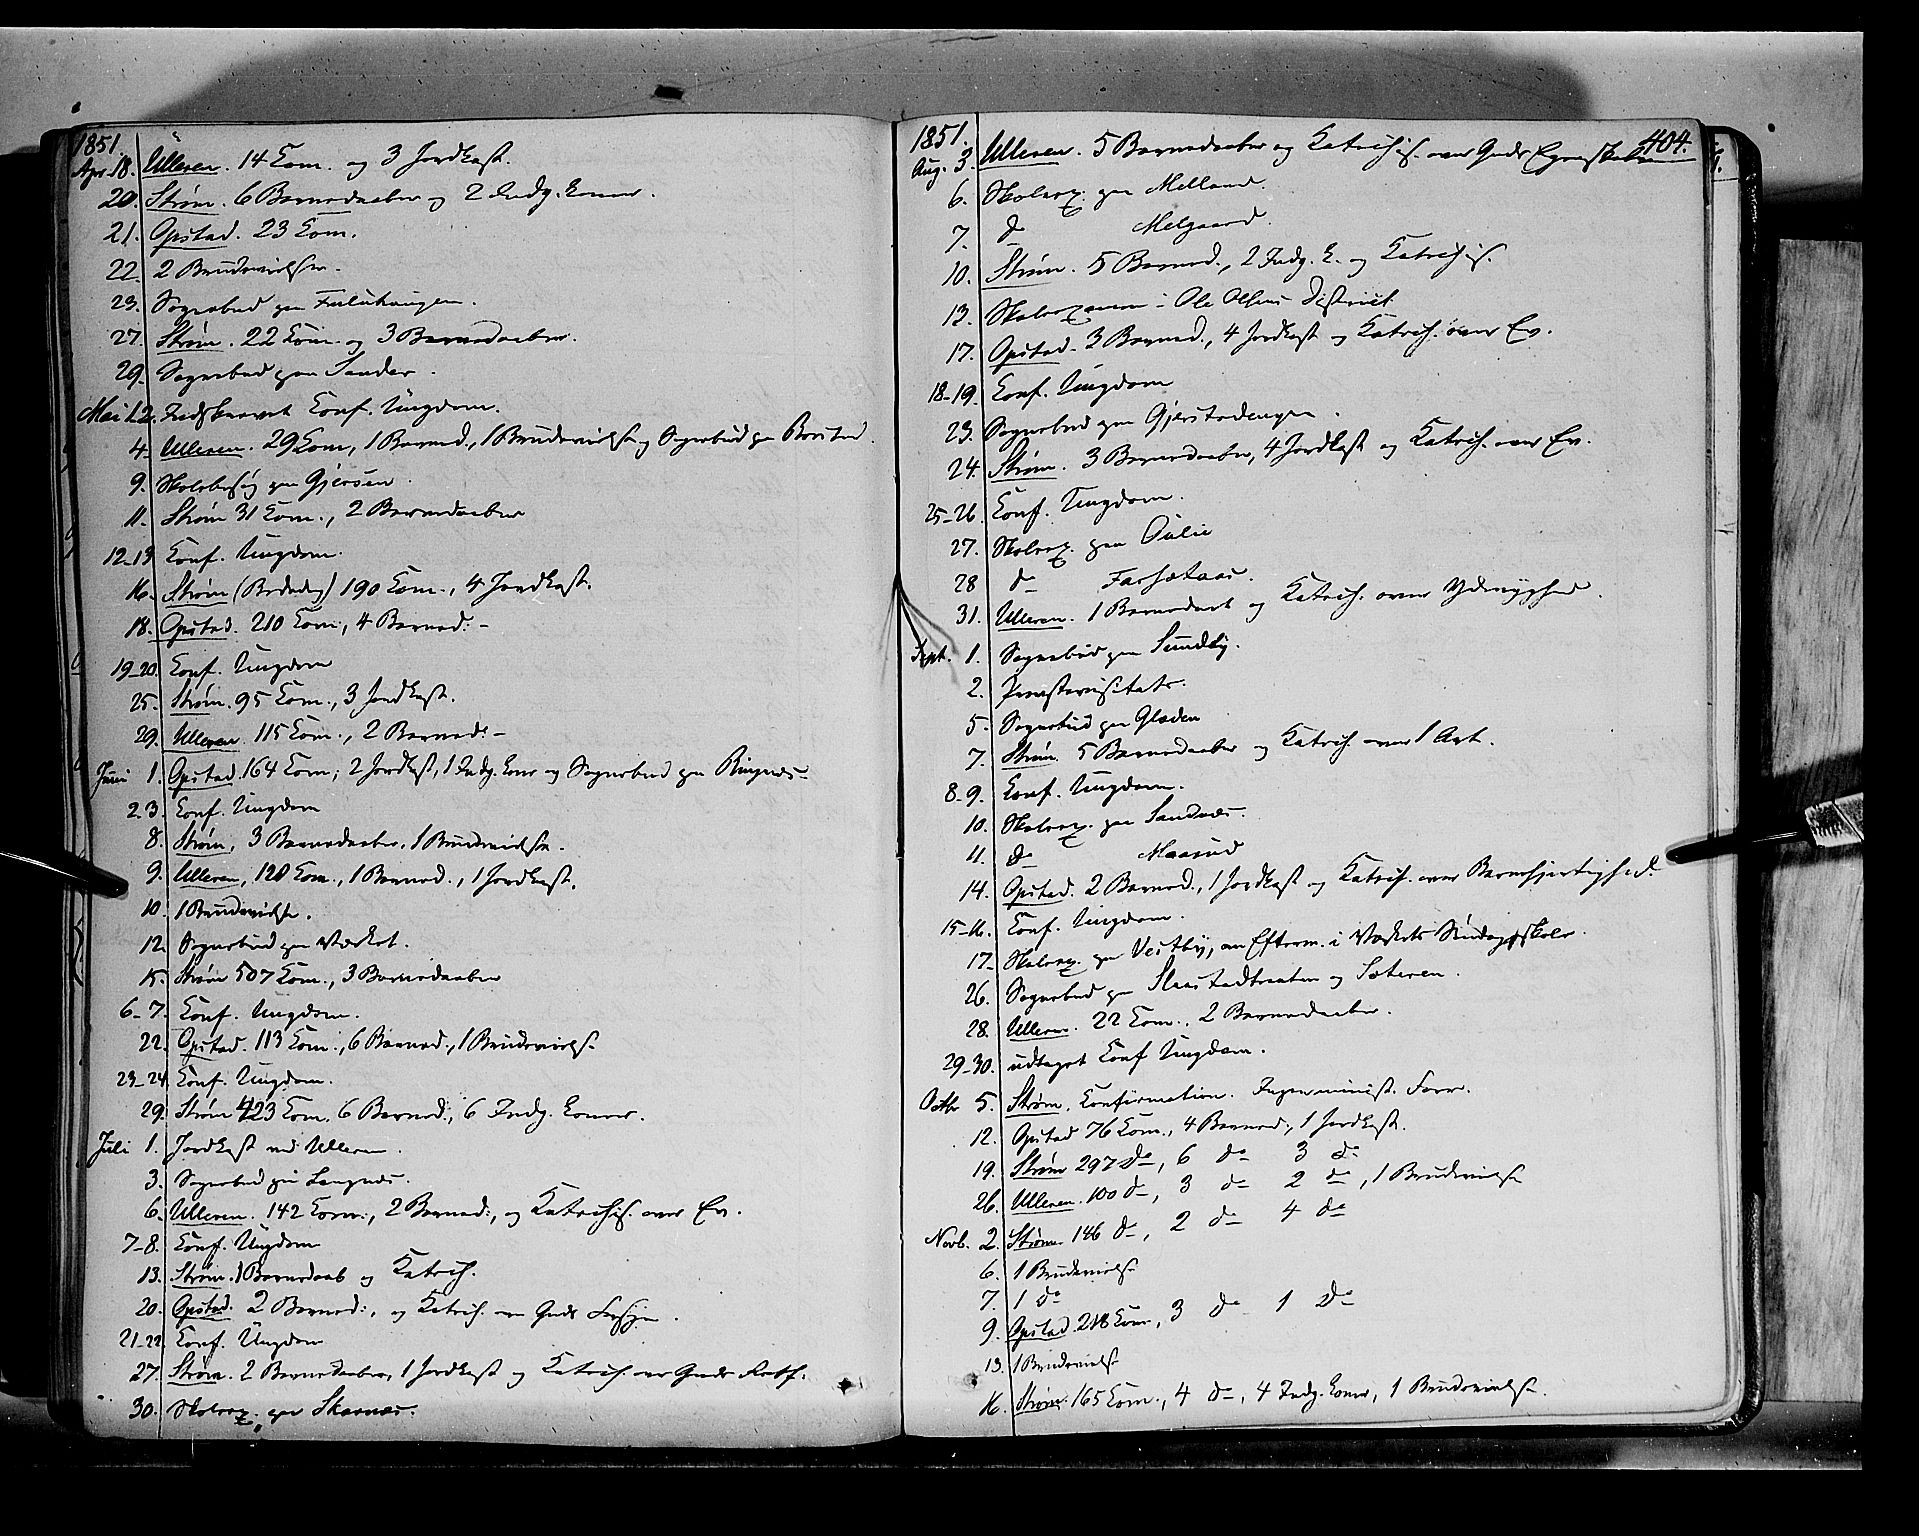 1851.
Apr. 18. Ulleren. 14 Com. og 3 Jordkast.
20. Strøm. 6 Barnedaaber og 2 Indg. Koner.
21. Opstad. 23 Com.
22. 2 Brudevielser.
23. Sognebud paa
27. Strøm. 22 Com. og 3 Barnedaaber.
29. Sognebud paa Sander.
Mai 1.2. Indskrevet Conf. Ungdom.
4. Ulleren. 29 Com., 1 Barned., 1 Brudevielse og Sognebud paa
9. Skolebesøg paa Gjersøen.
11. Strøm 31 Com., 2 Barnedaaber
12-13 Conf. Ungdom.
16. Strøm (Bededag) 190 Com., 4 Jordkast.
18. Opstad. 210 Com., 4 Barned. -
19-20. Conf. Ungdom
25. Strøm. 95 Com., 3 Jordkast.
29. Ulleren. 115 Com., 2 Barned. -
Juni 1. Opstad. 164 Com., 2 Jordkast, 1 Indg. Kone og Sognebud paa Ringnæs -
2.3. Conf. Ungdom
8. Strøm, 3 Barnedaaber, 1 Brudevielse.
9. Ulleren, 128 Com., 1 Barned., 1 Jordkast.
10. 1 Brudevielse.
12. Sognebud paa Værket.
15. Strøm 507 Com., 3 Barnedaaber
6-7. Conf. Ungdom.
22. Opstad. 113 Com., 6 Barned., 1 Brudevielse.
23-24 Conf. Ungdom.
29. Strøm 423 Com. 6 Barned., 6 Indg. Koner.
Juli 1. Jordkast ved Ulleren.
3. Sognebud paa Langnæs.
6. Ulleren. 142 Com., 2 Barned., og Katechis. over Ev.
7-8. Conf. Ungdom
13. Strøm. 1 Barnedaab og Katech.
20. Opstad. 2 Barned., og Katech. over Guds Forsyn.
21-22 Conf. Ungdom
27. Strøm. 2 Barnedaaber, 1 Jordkast og Katech. over Guds
30. Skolex. paa Skarnæs.
1851. 404.
Aug. 3. Ulleren. 5 Barnedaaber og Katechis. over Guds Egenskaber
6. Skolex. paa Melland.
7. do Melgaard.
10. Strøm. 5 Barned., 2 Indg. K. og Katechis.
13. Skolexamen i Ole Olsens District
17. Opstad. 3 Barned., 4 Jordkast og Katech. over Ev.
18-19. Conf. Ungdom
23. Sognebud paa Gjerstadengen.
24. Strøm. 3 Barnedaaber, 4 Jordkast og Katech. over Ev.
25-26. Conf. Ungdom.
27. Skolex. paa Øulie
28 do Farsætaas.
31. Ulleren. 1 Barnedaab og Katech. over Ydmyghed.
Sept. 1. Sognebud paa Sundby.
2. Provstevisitats.
5. Sognebud paa Gladen
7. Strøm. 5 Barnedaaber og Katech. over 1 Art.
8-9. Conf. Ungdom.
10. Skolex. paa Sandnæs.
11. do Maarud
14. Opstad. 2 Barned., 1 Jordkast og Katech. over Barmhjertighed
15-16. Conf. Ungdom.
17. Skolex. paa Vestby, om Efterm. i Værkets Søndagsskole.
26. Sognebud paa Slaastadtraaten og Sæteren.
28. Ulleren. 22 Com., 2 Barnedaaber.
29-30. udtaget Conf. Ungdom.
Octbr 5. Strøm. Confirmation. Ingen minist. Forr.
12. Opstad 76 Com., 4 Barned., 1 Jordkast.
19. Strøm 297 do, 6 do 3 do
26. Ulleren. 100 do, 3 do 2 do, 1 Brudevielse
Novb. 2. Strøm. 146 do, 2 do 4 do
6. 1 Brudevielse
7. 1 do
9. Opstad. 218 Com., 3 do 1 do
13. 1 Brudevielse
16. Strøm. 165 Com., 4 do, 4 Indg. Koner, 1 Brudevielse.